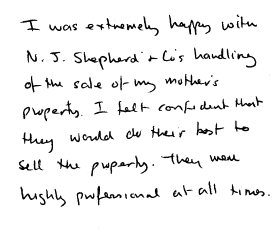 I was extremely happy with
N. J. Shepherd & Co's handling
of the sale of my mother's
property. I felt confident that
they would do their best to
sell the property. They were
highly professional at all times.